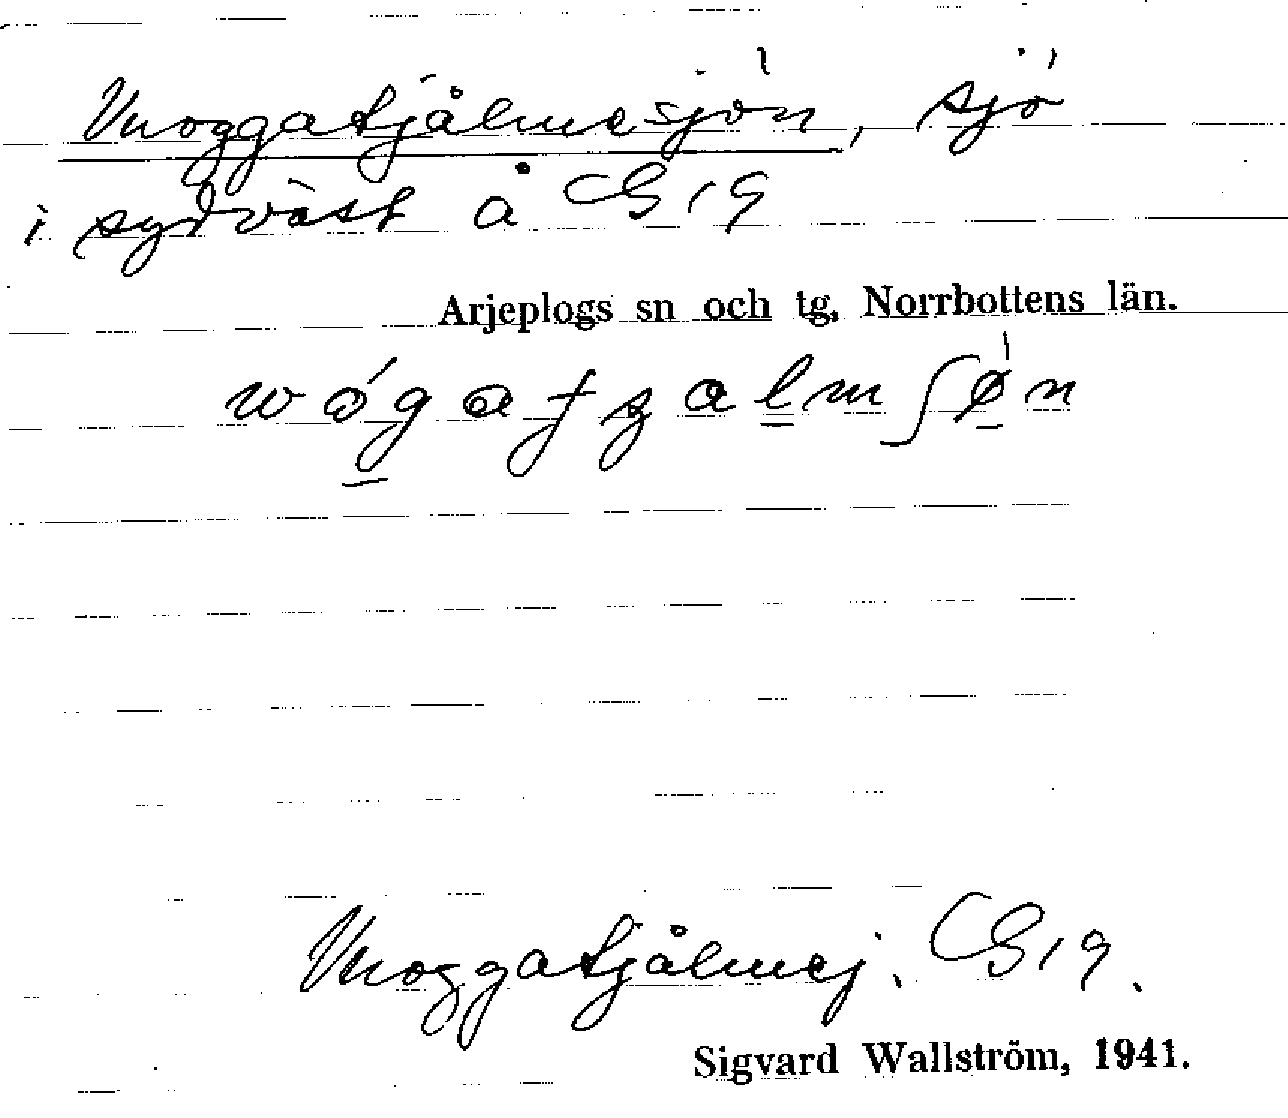 Vuoggatjålmesjön, sjö
i sydväst å G 19
Arjeplogs sn och tg, Norrbottens län.
Vuoggatjålmej. G 19.
Sigvard Wallström, 1941.